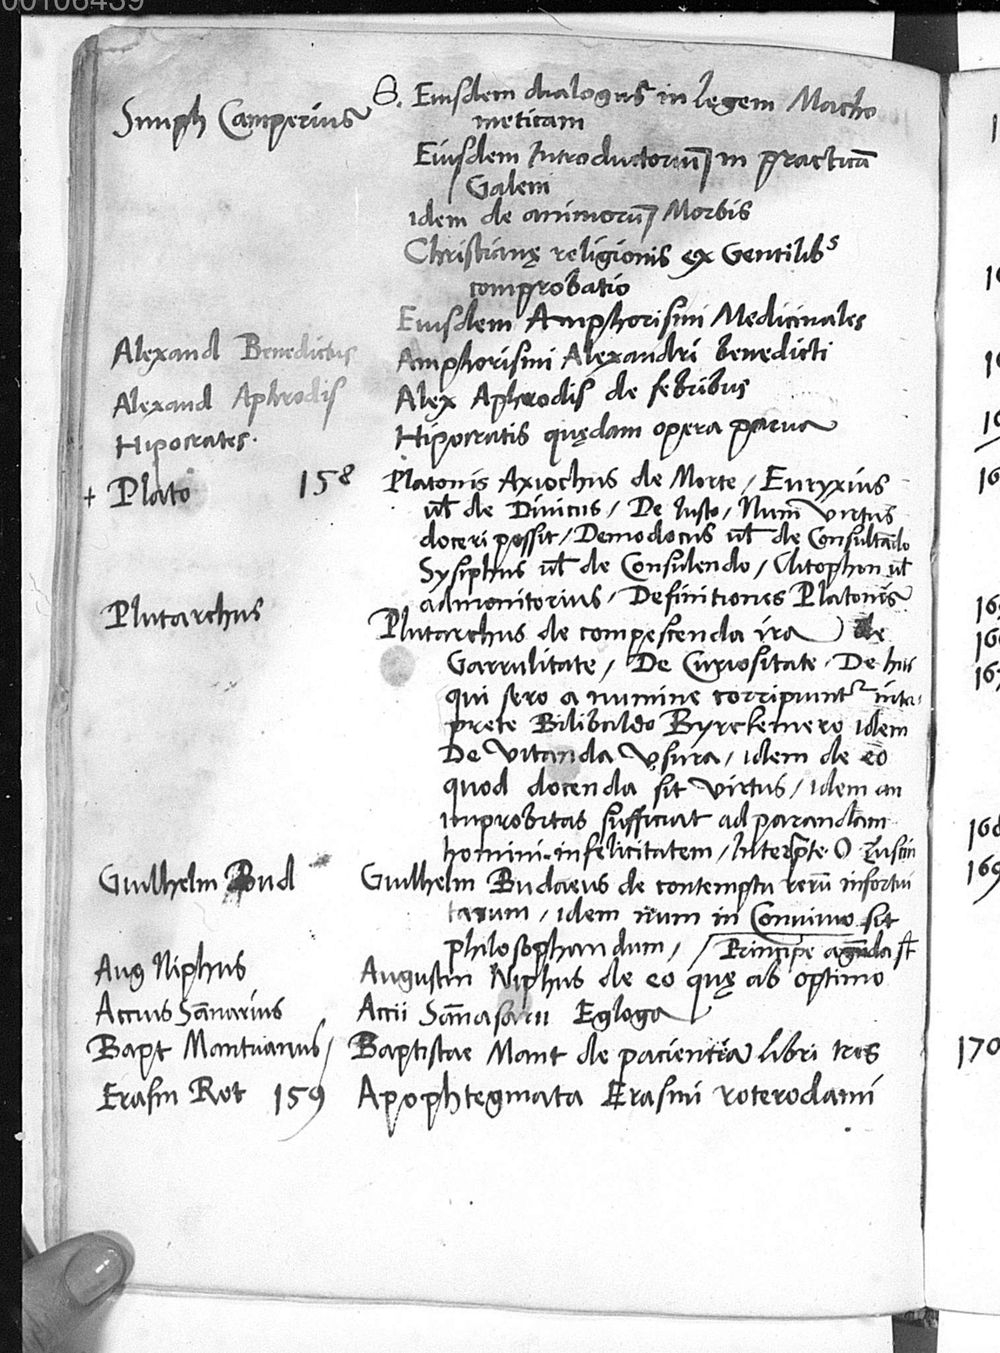 00106439
Simph Camperius S. Eiusdem dialogus in legem Macho
meticam
Eiusdem Introductoriu in practicā
Galeni
idem de animoru Morbis
Christianę religionis ex Gentilibs
comprobatio
Eiusdem Amphorismi Medicinales
Alexand Benedictus Amphorismi Alexandri benedicti
Alexand Aphrodis Alex Aphrodis de febribus
Hipocrates. Hipocratis quędam opera parua
+ Plato 158 Platonis Axiochus de Morte / Euryxius
ul de Divitiis / De Iusto / Num virtus
doceri possit / Demodocus ul de Consultādo
Sysiphus ul de Consulendo / Clitophon ul
admonitorius / Definitiones Platonis
Plutarchus Plutarchus de compescenda ira) de
Garrulitate / De Curiositate. De his
qui sero a numine corripiunt inter
prete Bilibaldo Byrckemero idem
De vitanda Vsura / idem de eo
quod docenda sit virtus / idem an
improbitas sufficiat ad parandam
homini infelicitatem / Interprte O Luscin
Guilhelm Bud Guilhelm Budaeus de contemptu rerū infortui
tarum / idem num in Convivio sit
philosophandum / Principe agenda st
Aug Niphus Augustin Niphus de eo quę ab optimo
Accius Sānarius Accii Sānasarii Egloga
Bapt Mantuanus / Baptistae Mant de pacientia libri tres
Erasm Rot 159 Apophtegmata Erasmi roterodami
170